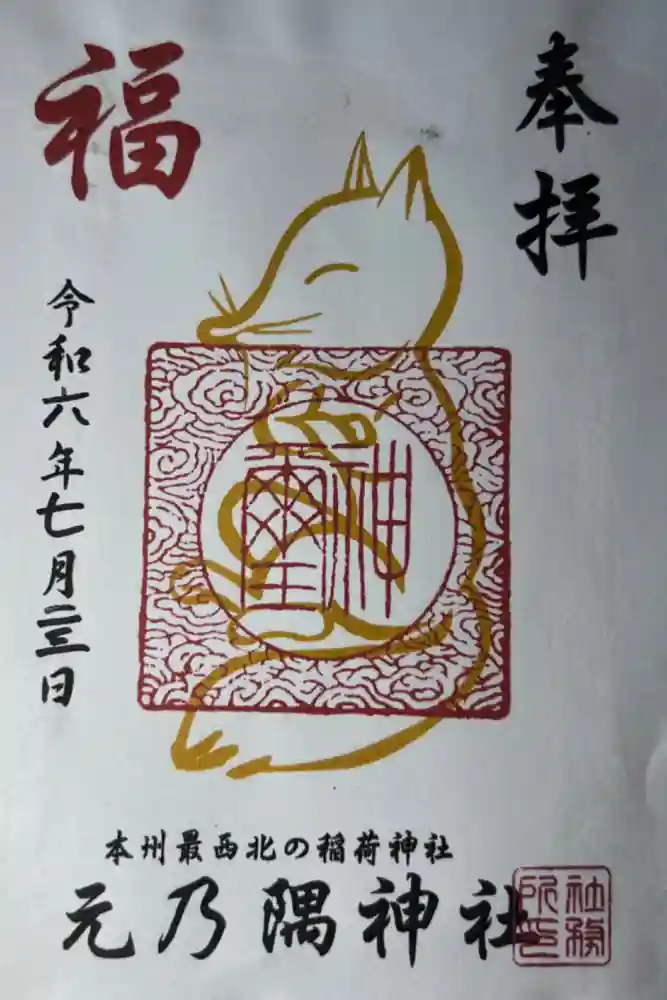 奉拝
福
令和六年七月二三日
神璽
本州最西北の稲荷神社
元乃隅神社
社務
所印